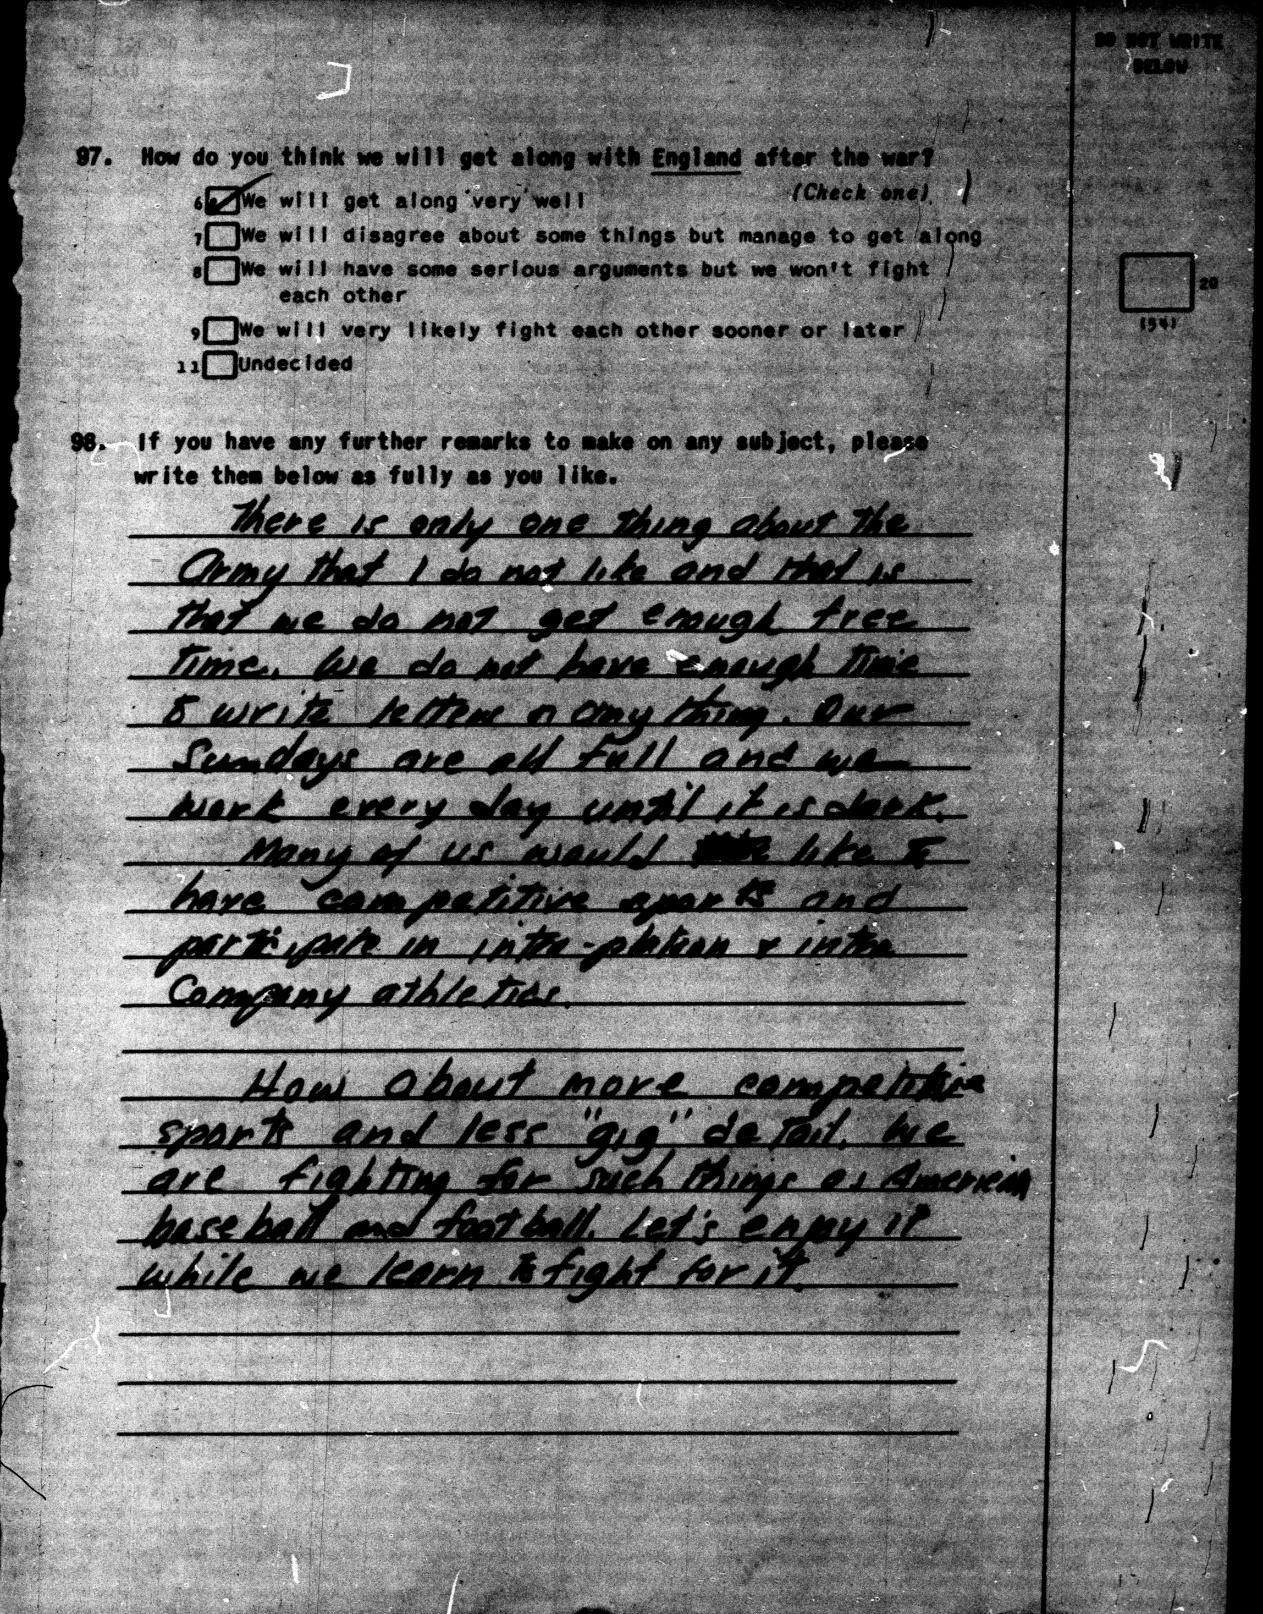 DO NOT WRITE
BELOW
97. How do you think we will get along with England after the war?
(Check one)
6 We will get along very well
7 We will disagree about some things but manage to get along
8 We will have some serious arguments but we won't fight
each other
9 We will very likely fight each other sooner or later
11 Undecided
20
98. If you have any further remarks to make on any subject, please
write them below as fully as you like.
There is only one thing about the
Army that I do not like and that is
that we do not get enough free
time. We do not have enough time
to write letters or any thing. Our
Sundays are all full and we
work every day until it is dark.
Many of us would like to
have competitive sports and
participate in intra-platoon & intra
Company athletics.
How about more competitive
sports and less "gig" detail. We
are fighting for such things as American
baseball and football. Let's enjoy it
while we learn to fight for it.